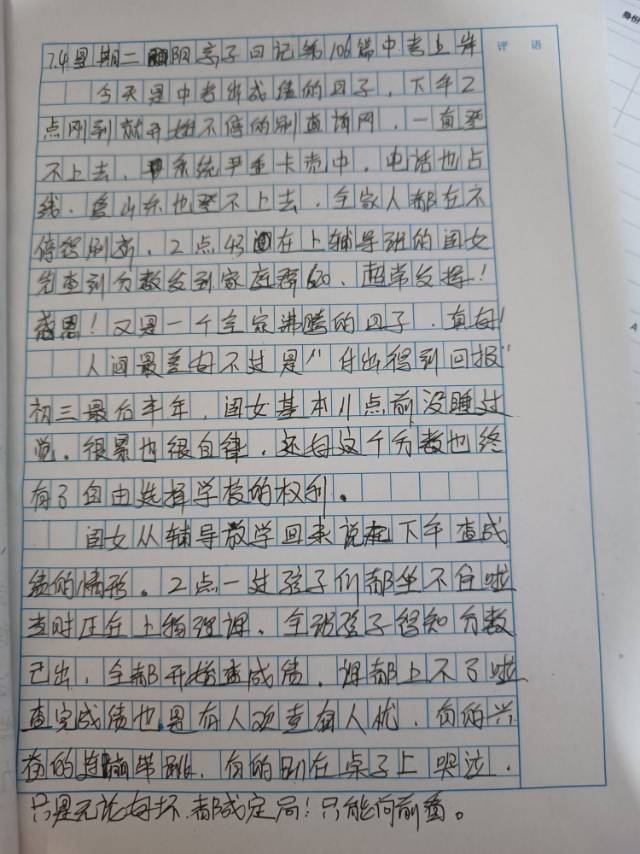 评 语
7.4星期二 阴 亲子日记第106篇中考上岸
今天是中考出成绩的日子，下午2
点刚到就开始不停的刷查询网，一直登
不上去，系统严重卡壳中，电话也占
线，爱山东也登不上去，全家人都在不
停得刷新，2点43在上辅导班的闺女
先查到分数发到家庭群，超常发挥！
感恩！又是一个全家沸腾的日子，真好！
人间最美好不过是“付出得到回报”
初三最后半年，闺女基本11点前没睡过
觉，很累也很自律，还好这个分数也终
有了自由选择学校的权利。
闺女从辅导放学回来说在下午查成
绩的情形。2点一过孩子们都坐不住啦
当时正在上物理课，全班孩子得知分数
已出，全都开始查成绩，课都上不了啦
查完成绩也是有人欢喜有人忧，有的兴
奋的蹦带跳，有的趴在桌子上哭泣，
只是无论好坏，都成定局！只能向前看。